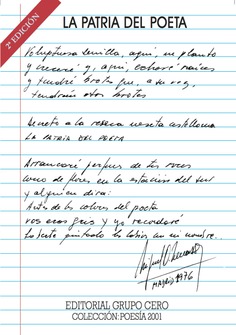 2ª EDICIÓN
LA PATRIA DEL POETA
Voluptuosa semilla, aquí, me planto
y creceré y, aquí, echaré raíces
y tendré brotes que, a su vez,
tendrán otros brotes
meseta castellana
LA PATRIA DEL POETA
Arrancaré perfumes de tus rocas
como de flores en la estación del sur
y alguien dirá:
Antes de los colores del poeta
vos eras gris y yo recordaré
tu boca pintando los labios en mi nombre.
MADRID 1976
EDITORIAL GRUPO CERO
COLECCIÓN: POESÍA 2001